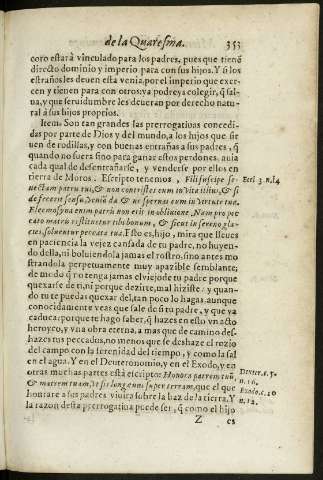 de la Quaresma. 353
coro estarà vinculado para los padres, pues que tienē
directo dominio y imperio para con sus hijos. Y si los
estraños les deuen esta venia, por el imperio que exer-
cen y tienen para con otros: ya podreys colegir, q̃ sal-
ua, y que seruidumbre les deueran por derecho natu-
ral a sus hijos proprios.
Item. Son tan grandes las prerrogatiuas concedi-
das por parte de Dios y del mundo, a los hijos que sir
uen de rodillas, y con buenas entrañas a sus padres, q̃
quando no fuera sino para ganar estos perdones, auia
cada qual de desentrañarse, y venderse por ellos en
tierra de Moros. Escripto tenemos, Fili suscipe se- Eccl. 3. n. 14
nectam patris tui, & non contristes eum in vita illius, & si
defecerit sensu, veniā da & ne spernas eum in virtute tua.
Eleemosyna enim patris non erit in obliuione. Nam pro pec
cato matris restituetur tibi bonum, & sicut in sereno gla-
cies, soluentur peccata tua. Esto es, hijo, mira que lleues
en paciencia la vejez cansada de tu padre, no huyen-
do della, ni boluiendola jamas el rostro, sino antes mo
strandola perpetuamente muy apazible semblante;
de modo q̃ no tenga jamas el viejo de tu padre porque
quexarse de ti, ni porque dezirte, mal hiziste: y quan-
do tu te puedas quexar del, tan poco lo hagas, aunque
conocidamente veas que sale de si tu padre, y que ya
caduca: porque te hago saber, q̃ hazes en esto vn acto
heroyco, y vna obra eterna, a mas que de camino des-
hazes tus peccados, no menos que se deshaze el rozio
del campo con la serenidad del tiempo, y como la sal
en el agua. Y en el Deuteronomio, y en el Exodo, y en Deuter. c. 5.
otras muchas partes està escripto: Honora patrem tuū, n. 16.
& matrem tuam, vt sis longæuus super terram, que el que Exodo. c. 20
honrare a sus padres viuira sobre la haz de la tierra. Y n. 12.
la razon desta prerrogatiua puede ser, q̃ como el hijo
Z es